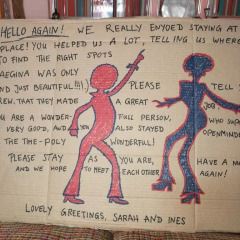 HELLO AGAIN! WE REALLY ENYOED STAYING AT
PLACE! YOU HELPED US A LOT, TELLING US WHERE
TO FIND THE RIGHT SPOTS
AEGINA WAS ONLY
AND JUST BEAUTIFUL!!!) PLEASE TELL
REW. THAT THEY MADE A GREAT JOB
YOU ARE A WONDER- FULL PERSON, WHO SUPP
VERY GOOD, AND YOU ALSO STAYED OPENMIND
THE THE-POLY WONDERFUL!
PLEASE STAY AS YOU ARE, HAVE A
AND WE HOPE TO MEET EACH OTHER AGAIN!
LOVELY GREETINGS, SARAH AND INES